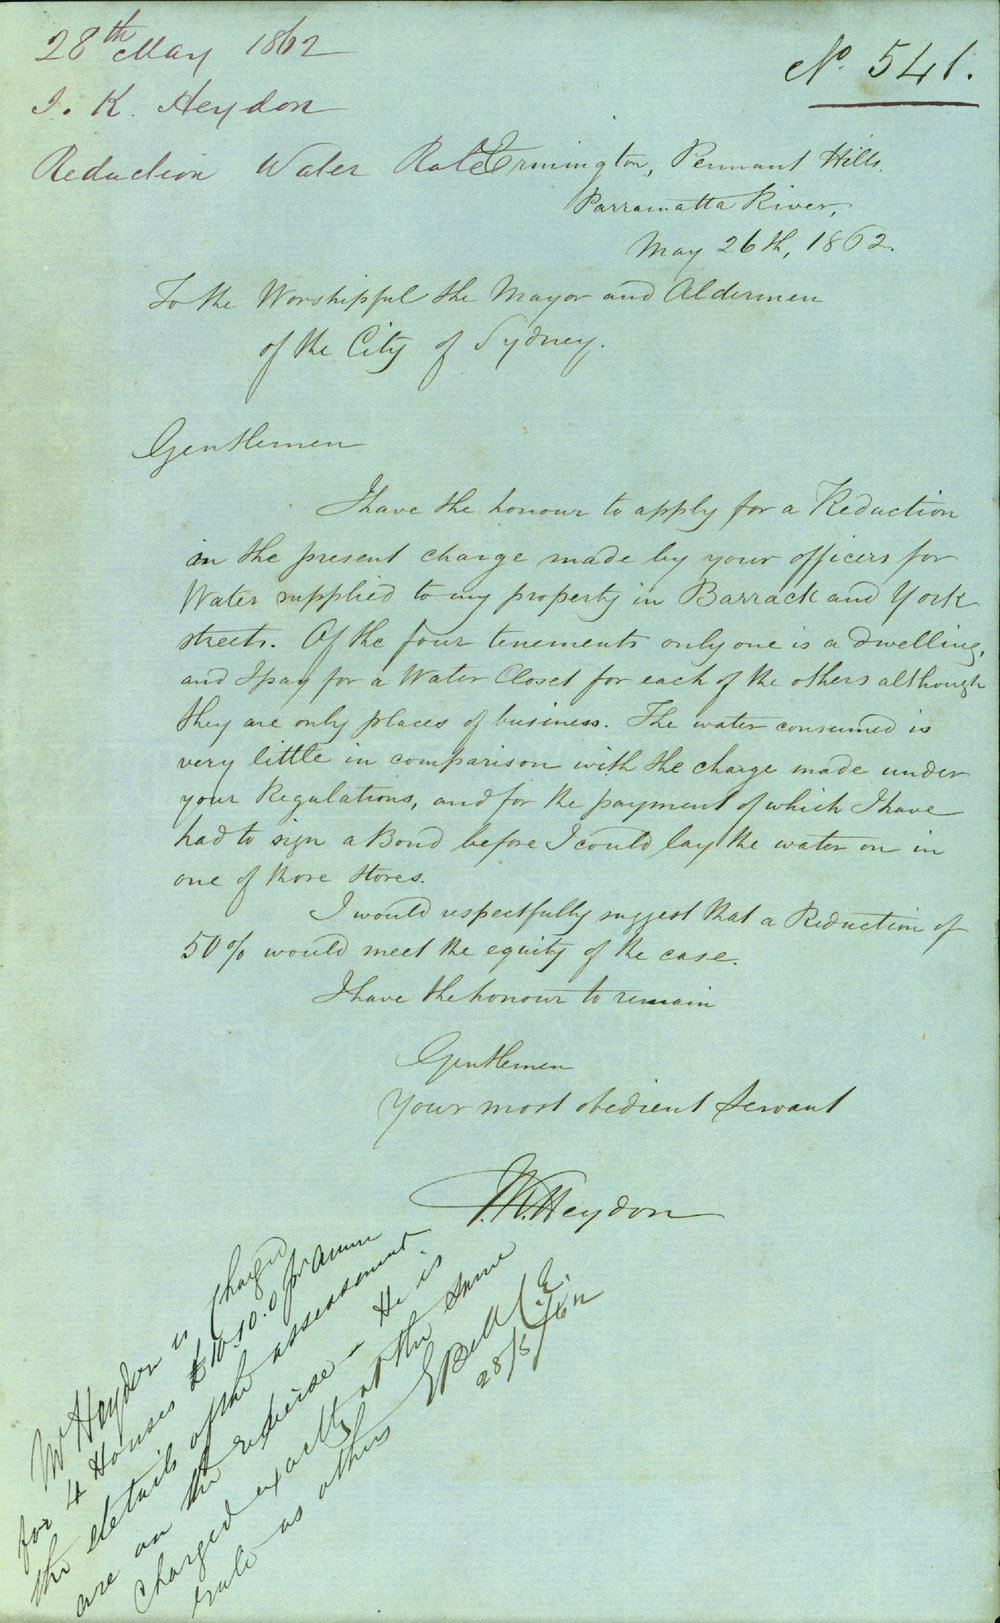 28th May 1862
J. K. Heydon
Reduction Water Rate
No. 541.
Ermington, Pennant Hills,
Parramatta River,
May 26th, 1862.
To the Worshipful the Mayor and Aldermen
of the City of Sydney.
Gentlemen
I have the honour to apply for a Reduction
in the present charge made by your officers for
Water supplied to my property in Barrack and York
streets. Of the four tenements only one is a dwelling,
and I pay for a Water Closet for each of the others although
they are only places of business. The water consumed is
very little in comparison with the charge made under
your Regulations, and for the payment of which I have
had to sign a Bond before I could lay the water on in
one of those stores.
I would respectfully suggest that a Reduction of
50% would meet the equity of the case.
I have the honour to remain
Gentlemen
Your most obedient Servant
J. K. Heydon
Mr Heydon is charged
for 4 Houses £10.10.0 per annum
the details of the assessment
are on the reverse – He is
charged exactly at the same
rate as others
E Bell C.E.
28/5/62